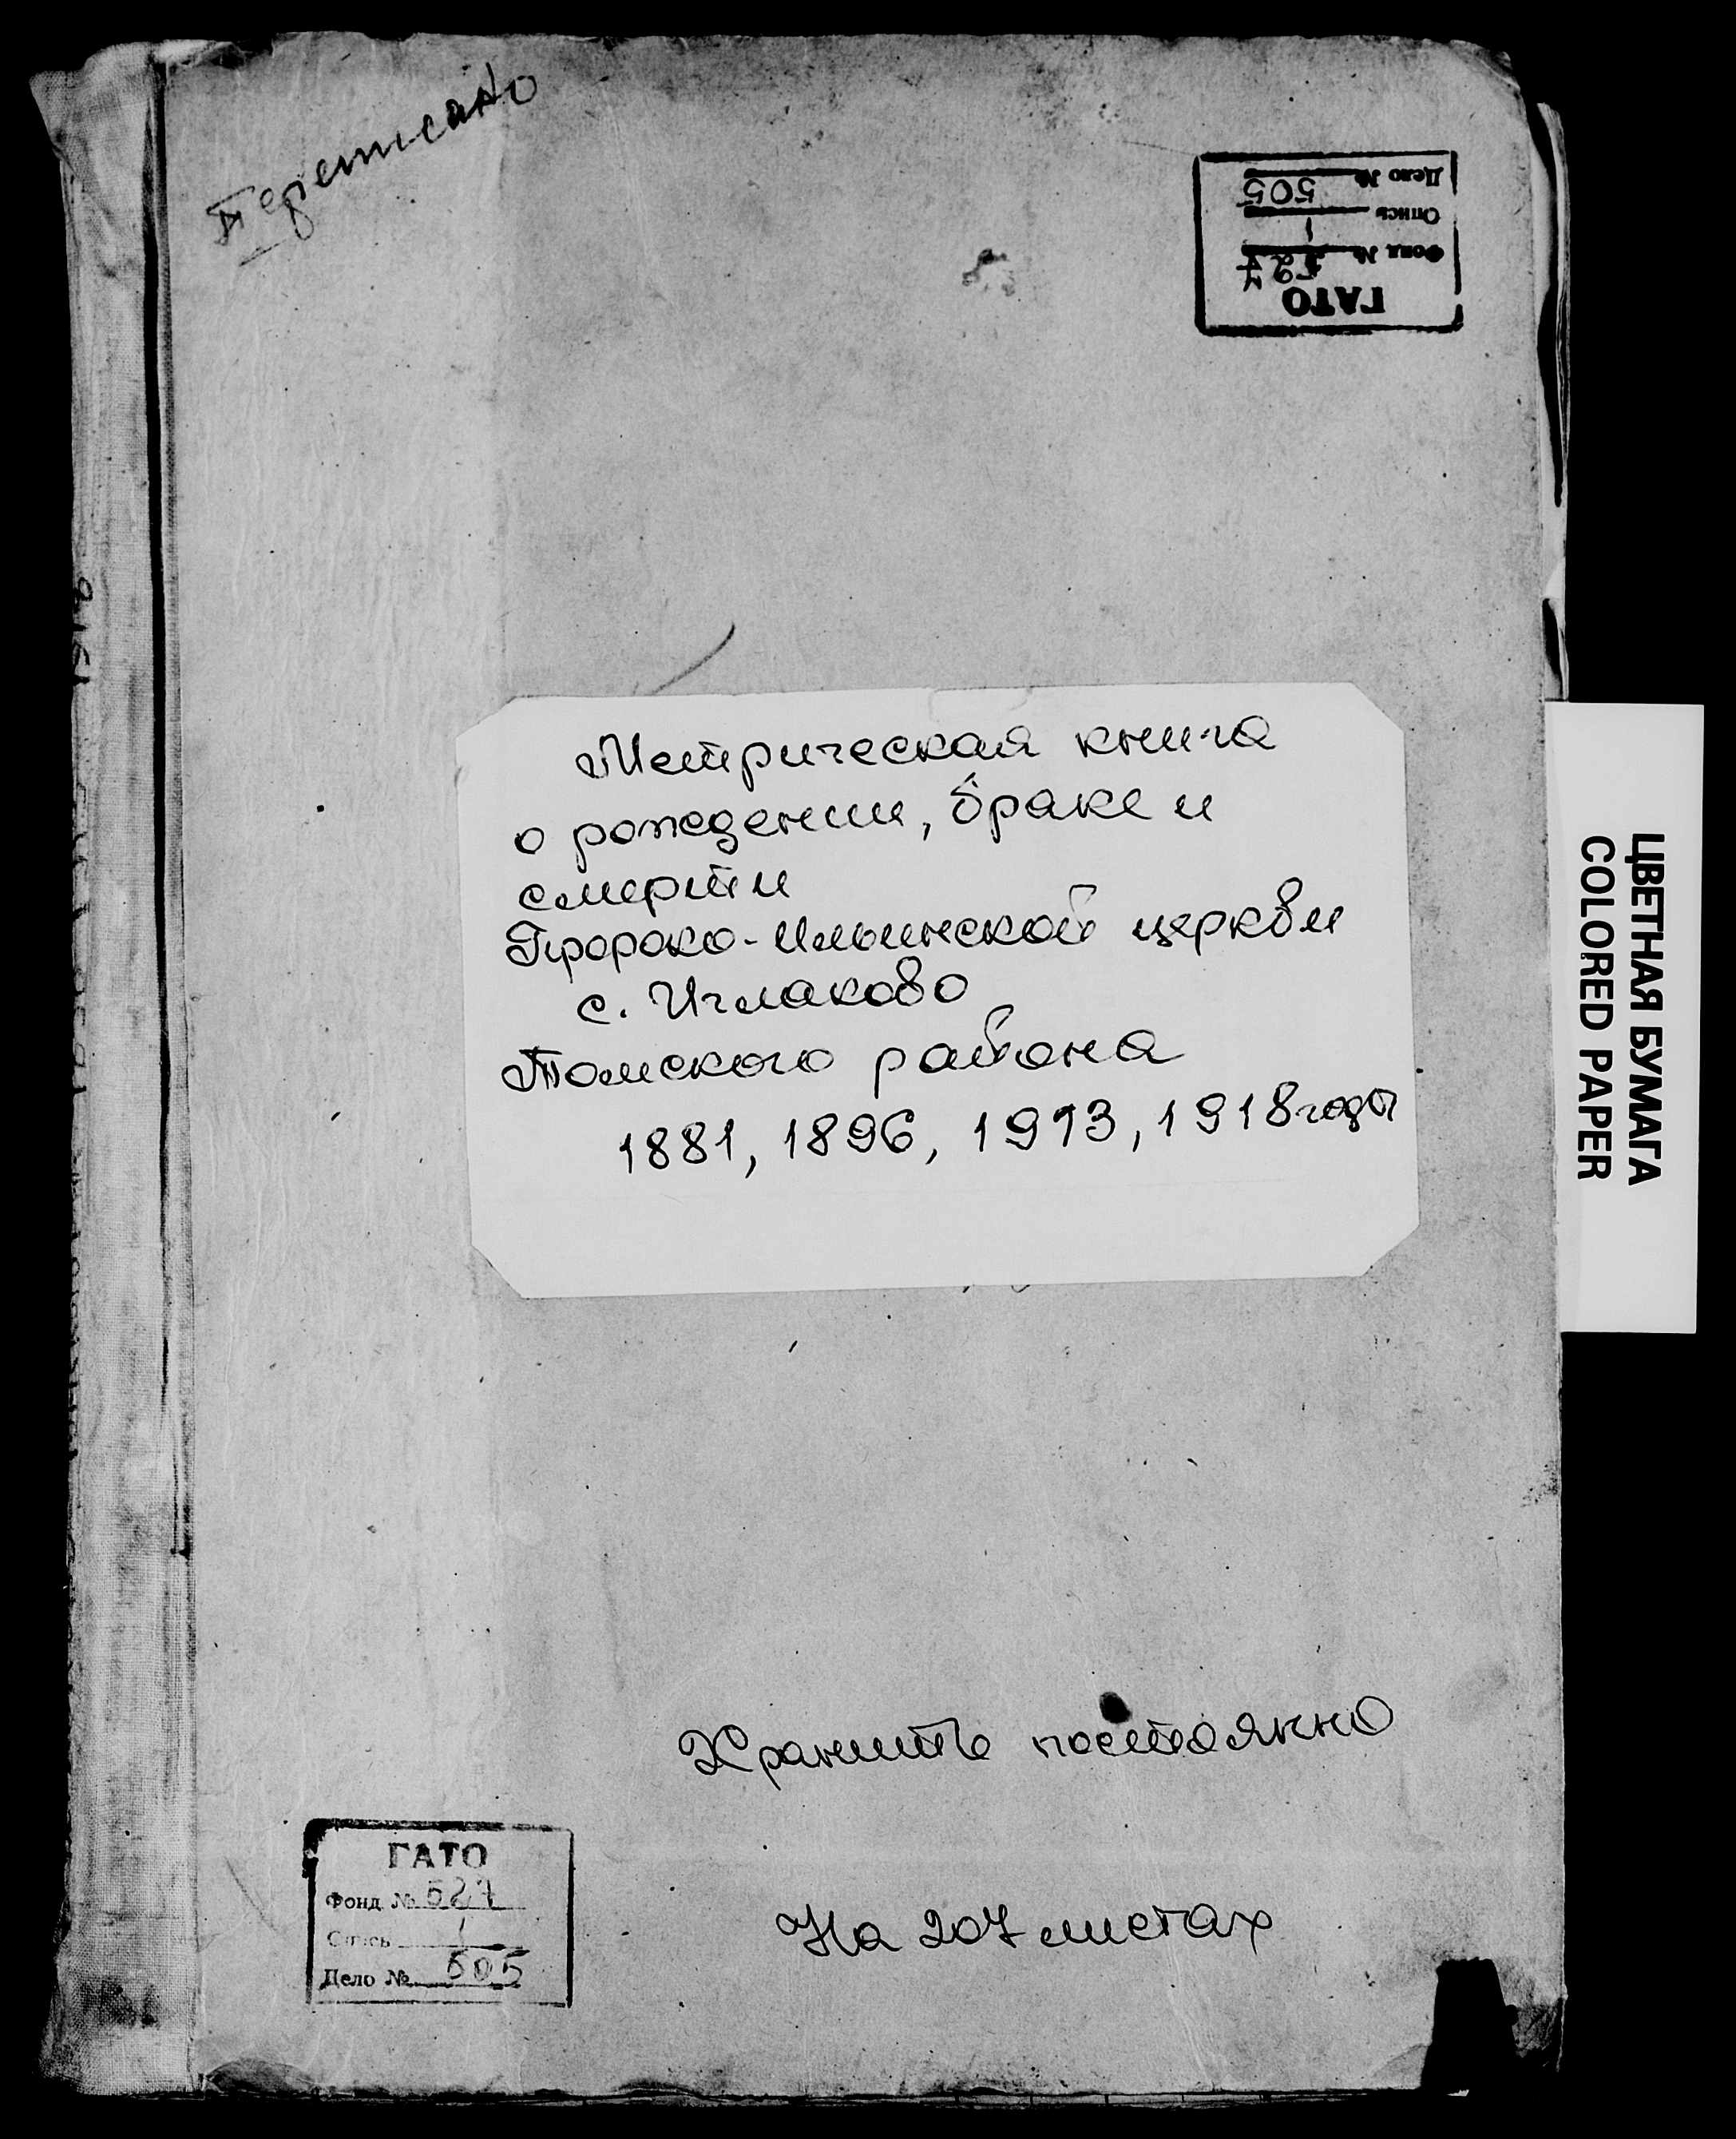 Переписано
Дело № 505
Опись 1
Фонд № 527
ГАТО
Метрическая книга
о рождении, браке и
смерти
Пророко-Ильинской церкви
с. Иглаково
Томского района
1881, 1896, 1913, 1918 годы
ЦВЕТНАЯ БУМАГА
COLORED PAPER
Хранить постоянно
На 207 листах
ГАТО
Фонд № 527
Опись 1
Дело № 505